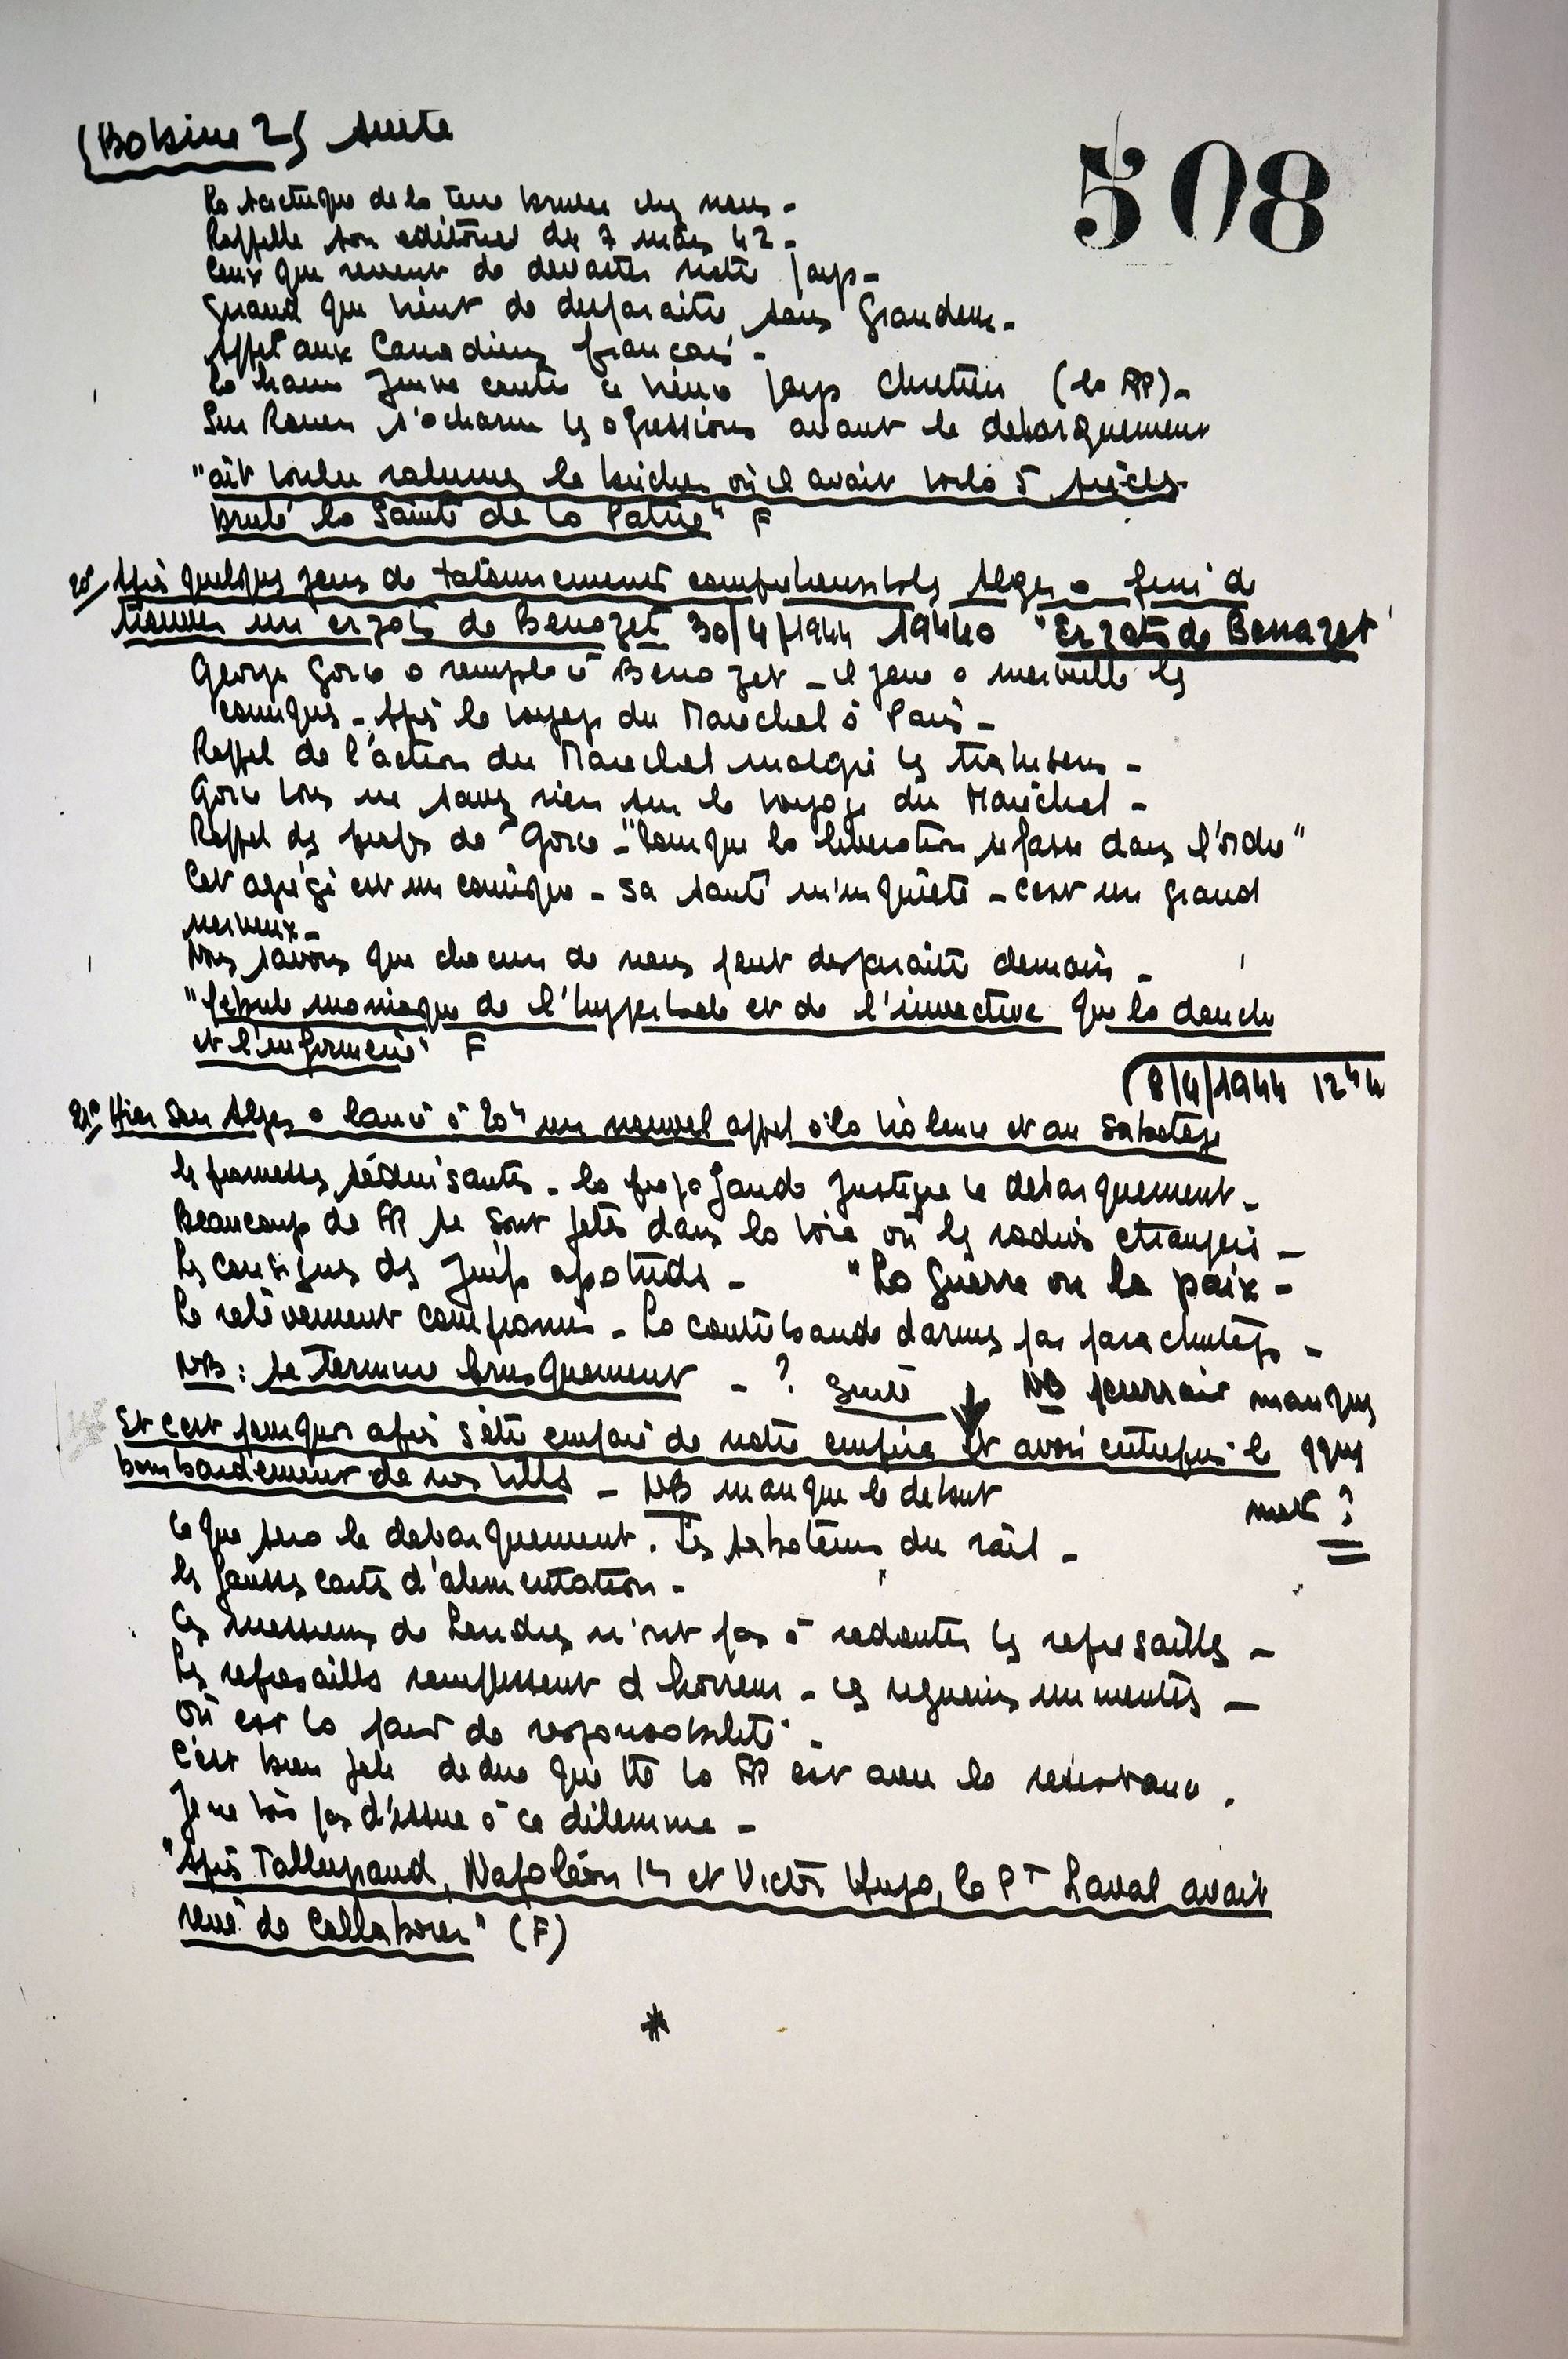 (Bobine 2) suite
508
La tactique de la terre brulee chez nous -
Rappelle son editorial du 7 mars 42 -
Ceux que revent de devaster notre pays -
Giraud que vient de disparaitre sans Grandeur -
Appel aux Canadiens français -
la haine Juive contre ce vieux pays chretien (la FR) -
Sur Rouen s'acharne les agressions avant le debarquement
"ait voulu ralumer le bucher où il avait voila 5 siècles
brulé la Sainte de la Patrie" F
20° Après quelques jours de tatonnements comprehensibles Alger a fini de
trouver un erzats de Benazet 30/4/1944 19h40 "Erzats de Benazet
George Gorce a remplacé Benazet - il joue a merveille les
comiques - Après le voyage du Marechal à Paris -
Rappel de l'action du Marechal malgré les trahisons -
Gorce vous ne savez rien sur le voyage du Maréchal -
Rappel des props de Gorce - "Pour que la liberation se fasse dans l'ordre"
Cet agrégé est un comique - sa santé m'inquiète - c'est un grand
nerveux -
Nous savons que chacun de nous peut disparaitre demain -
maniaque de l'hyperbole et de l'invective que la douche
et l'infirmerie" F
8/4/1944 12h4
21° Hier soir Alger a lancé à 20h un nouvel appel à la violence et au sabotage
les promesses séduisantes - la propagande justifie le debarquement -
Beaucoup de FR se sont jetés dans la voie où les radios etrangères -
Les consignes des Juifs apatrides - "La Guerre ou la paix -
Le relèvement compromis - La contrebande d'armes par parachutage -
NB: se termine brusquement - ? suite ↓ NB pourrait manquer
Et c'est pourquoi après s'être emparé de notre empire et avoir entrepris le qques
bombardement de nos villes - NB manque le debut
mots ?
Ce que sera le debarquement. Les saboteurs du rail -
les fausses cartes d'alimentation -
Ces messieurs de Londres n'ont pas à redouter les represailles -
Les represailles remplissent d'horreur - ces
Où est la part de responsabilité -
C'est bien joli de dire que tte la FR est avec la resistance .
Je ne vois pas d'issue à ce dilemme -
"Après Talleyrand, Napoléon 1er et Victor Hugo, le Pt Laval avait
revé de Collaborer" (F)
*